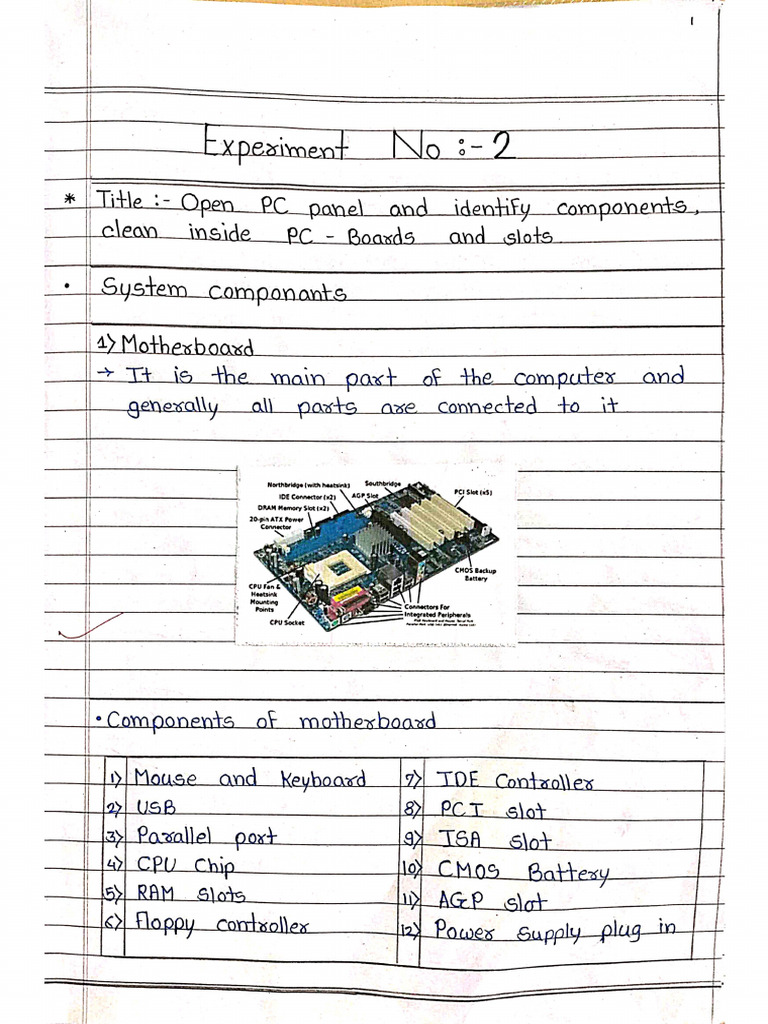 1
Experiment No :- 2
* Title :- Open PC panel and identify components,
clean inside PC - Boards and slots
• System componants
1) Motherboard
→ It is the main part of the computer and
generally all parts are connected to it
Northbridge (with heatsink)
Southbridge
IDE Connector (x2)
AGP Slot
PCI Slot (x5)
DRAM Memory Slot (x2)
20-pin ATX Power
Connector
CMOS Backup
Battery
CPU Fan &
Heatsink
Mounting
Points
Connectors For
Integrated Peripherals
CPU Socket
• Components of motherboard
1) Mouse and Keyboard
2) USB
3) Parallel port
4) CPU Chip
5) RAM slots
6) Floppy controller
7) IDE Controller
8) PCI slot
9) ISA slot
10) CMOS Battery
11) AGP slot
12) Power supply plug in